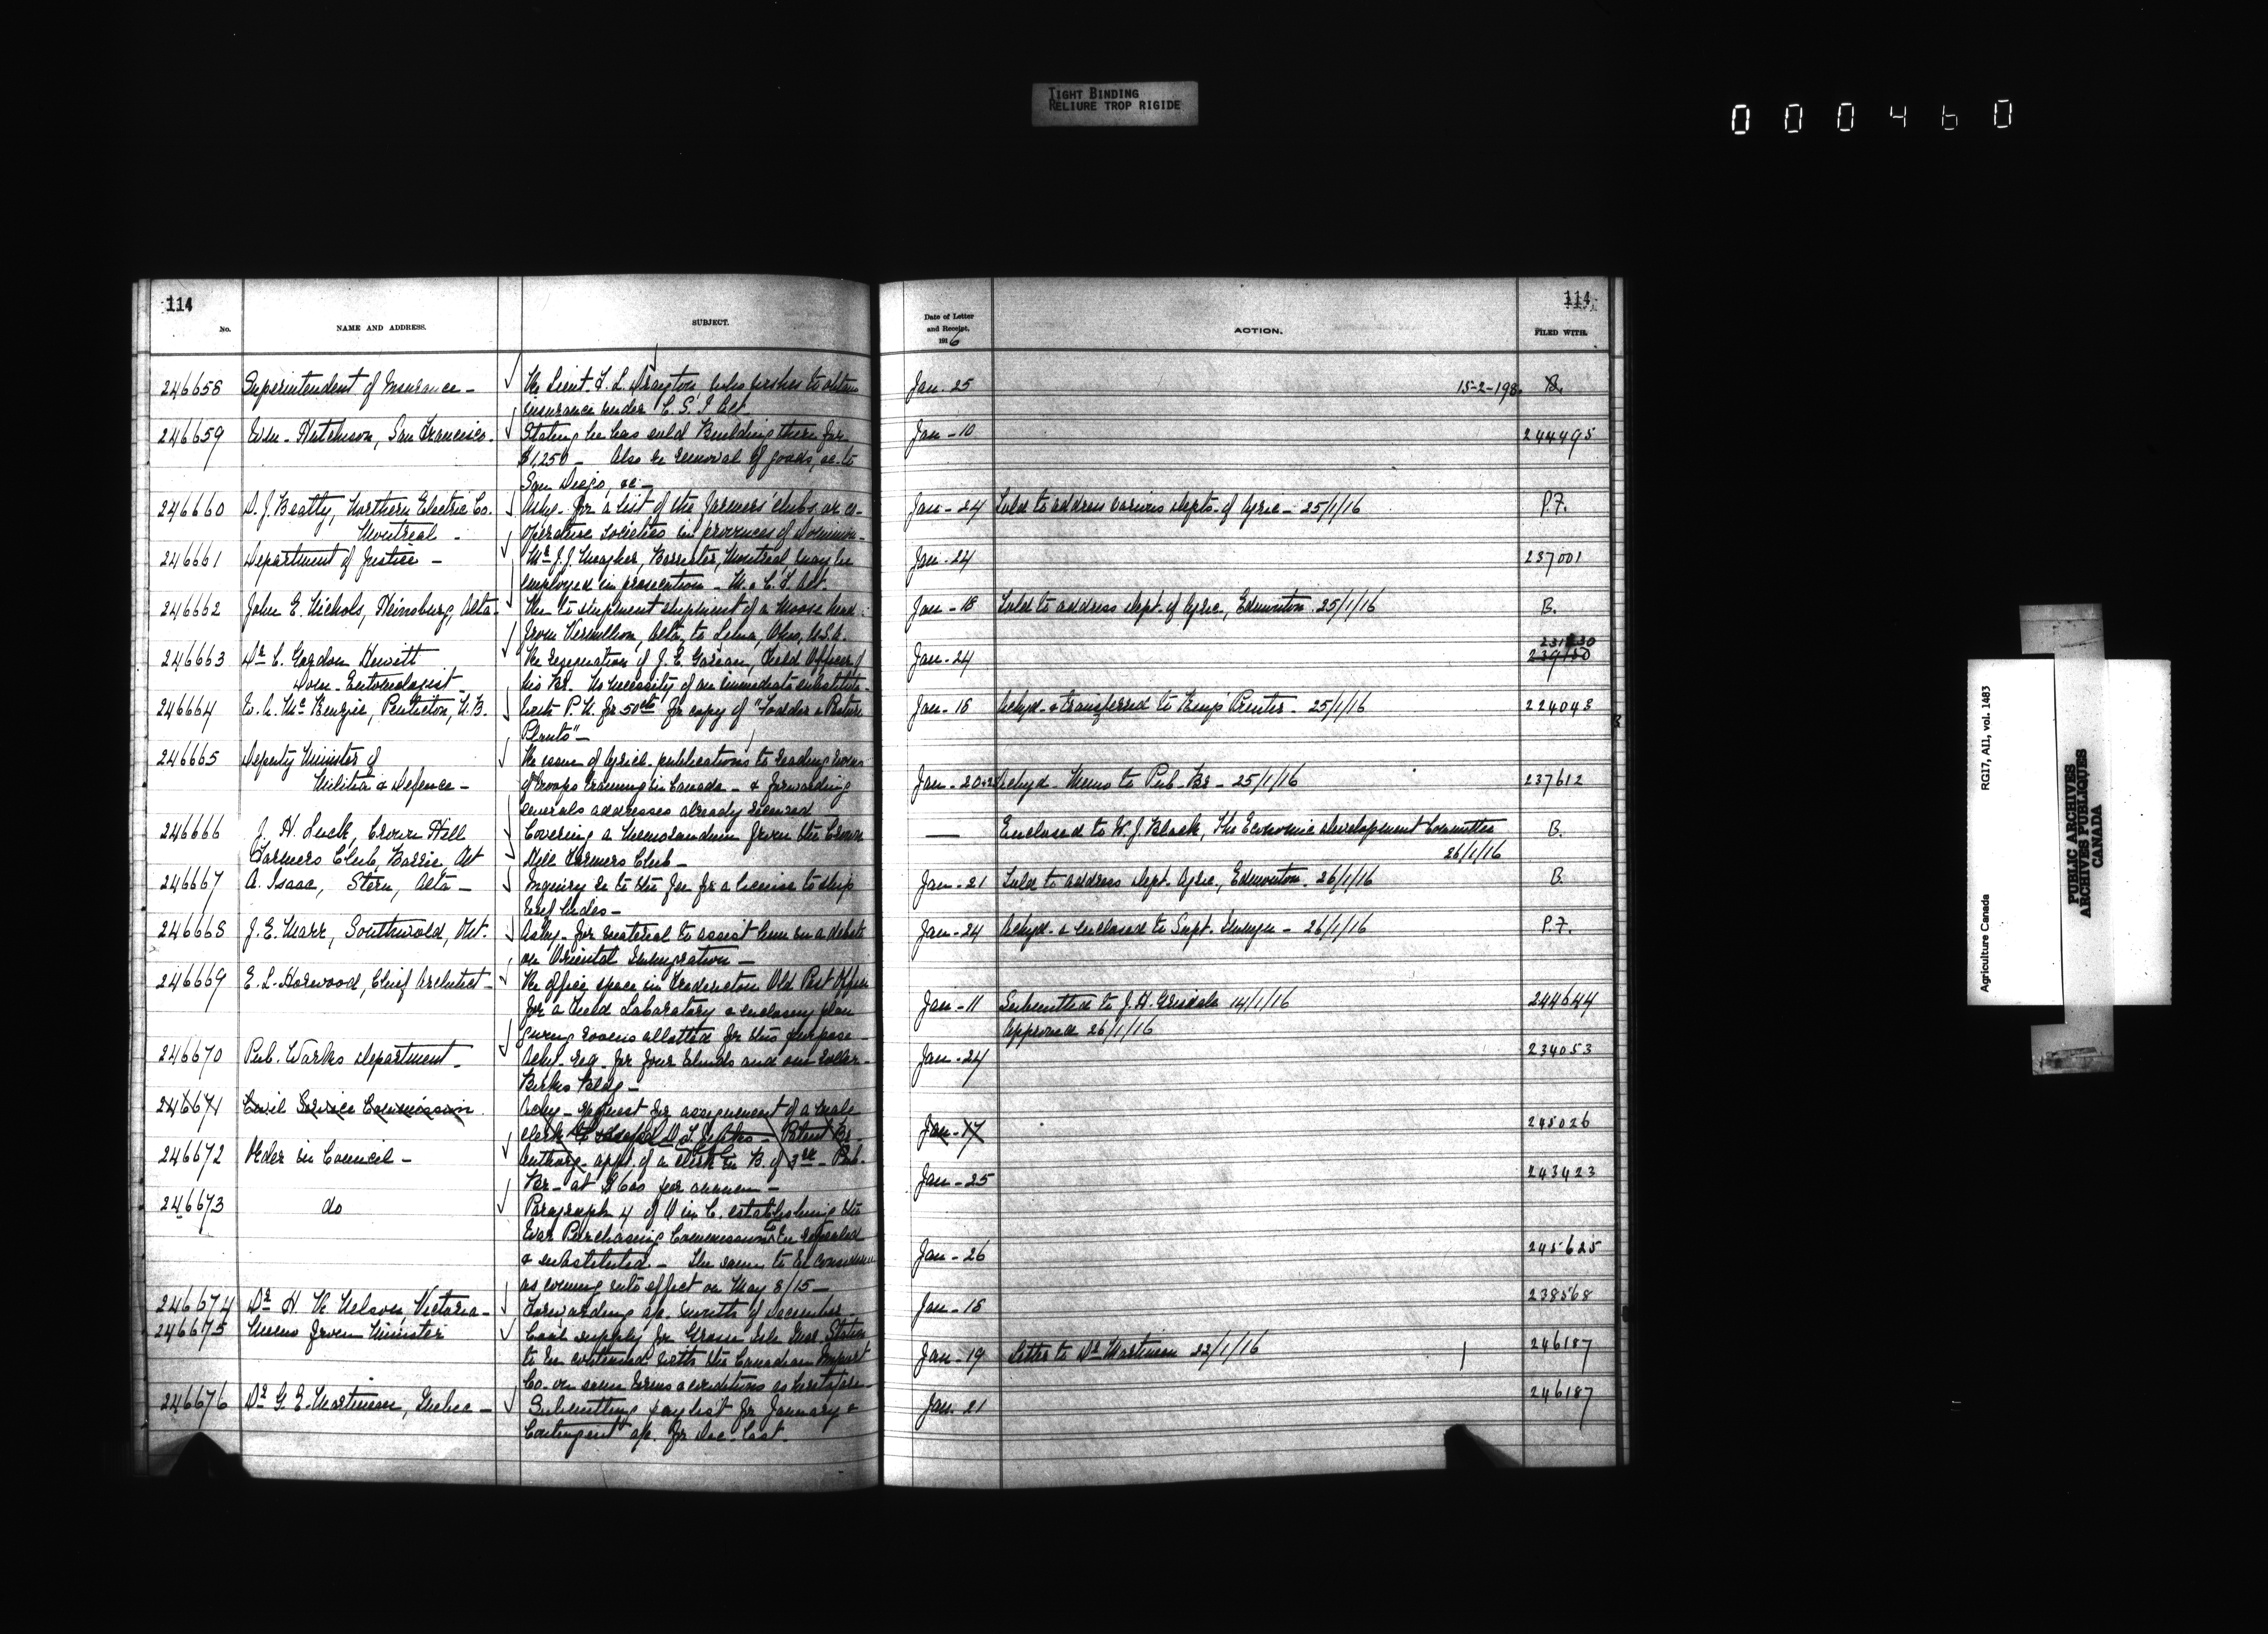 TIGHT BINDING
RELIURE TROP RIGIDE
000460
114
No.
NAME AND ADDRESS.
SUBJECT.
246658 Superintendent of Insurance - Re Lieut. L. L. Drayton who wishes to obtain
insurance under C. S. I Act.
246659 Wm. Hutchison, San Francisco. Stating he has sold Building there for
$1,250 - Also re removal of goods, &c. to
San Diego, &c -
246660 D. J. Beatty, Northern Electric Co. Askg. for a list of the farmers' clubs or co-
Montreal - operative societies in provinces of Dominion.
246661 Department of Justice - Mr J. J. Meagher, Barrister, Montreal may be
employed in prosecution - M. & C. F. Act.
246662 John E. Nichols, Heinsburg, Alta. Re to shipment of a Moose head
from Vermillion, Alta, to Lima, Ohio, U.S.A.
246663 Dr C. Gordon Hewitt Re resignation of J. E. Field Officer of
Dom. Entomologist his Br. & necessity of an immediate substitute.
246664 W. A. McKenzie, Penticton, with P. N. for 50cts for copy of "Fodder & Pasture
Plants" -
246665 Deputy Minister of Re issue of Agricl. publications to reading rooms
Militia & Defence - of troops training in Canada - & forwarding
several addresses already received
246666 J. H. Luck, Crown Hill Covering a Memorandum from the Crown
Farmers Club, Barrie, Ont Hill Farmers Club -
246667 A. Isaac, Stern, Alta - Inquiry re to the fee for a license to ship
beef hides -
246668 J. E. Marr, Southwold, Ont. Askg. for material to assist him in a debate
on Oriental Immigration -
246669 E. L. Horwood, Chief Architect - Re office space in Fredericton Old Post Office
for a Field Laboratory & enclosing plan
giving rooms allotted for this purpose -
246670 Pub. Works Department - Ackg. req. for four blinds and one roller -
Birks Bldg -
246671 Civil Service Commission Ackg - request for assignment of a male
clerk to Patent Br
246672 Order in Council - Authorg. appt. of a clerk in B. of 3rd - Pub.
Br - at $600 per annum -
246673 do Paragraph 4 of O in C. establishing the
War Purchasing Commission to be repealed
& substituted - The same to be considered
as coming into effect on May 8/15 -
246674 Dr H. R. Nelson Victoria - Forwarding a/c. month of December -
246675 Memo from Minister Coal supply for Grosse Isle Quar. Station
to be continued with the Canadian Import
Co. on same terms & conditions as heretofore -
246676 Dr G. E. Martineau, Quebec - Submitting pay list for January &
Contingent a/c. for Dec. last.
114
Date of Letter
and Receipt,
1916
ACTION.
FILED WITH.
Jan. 25 15-2-198. B.
Jan - 10 244495
Jan - 24 Told to address various Depts. of Agric - 25/1/16 P.F.
Jan - 24 237001
Jan - 18 Told to address Dept. of Agric, Edmonton. 25/1/16 B.
Jan - 24 239180
Jan - 18 Ackgd. & transferred to Kings Printer - 25/1/16 224043
Jan - 20 Ackgd. Memo to Pub. Br - 25/1/16 237612
— Enclosed to W. J. Black, The Economic Development Committee B.
26/1/16
Jan - 21 Told to address Dept. Agric, Edmonton. 26/1/16 B.
Jan - 24 Ackgd. & enclosed to Supt. Immgn - 26/1/16 P.F.
Jan - 11 Submitted to J. H. Grisdale 14/1/16 244644
Approved 26/1/16
Jan - 24 234053
Jan - 17 245026
Jan - 25 243423
Jan - 26 245625
Jan - 18 238568
Jan - 19 Letter to Dr Martineau 22/1/16 246187
Jan. 21 246187
Agriculture Canada
RG17, A11, vol. 1483
PUBLIC ARCHIVES
ARCHIVES PUBLIQUES
CANADA